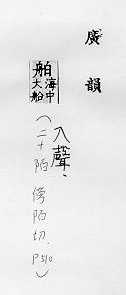 廣韻
舶海中大船
入聲.
(二十陌 傍陌切. P510)